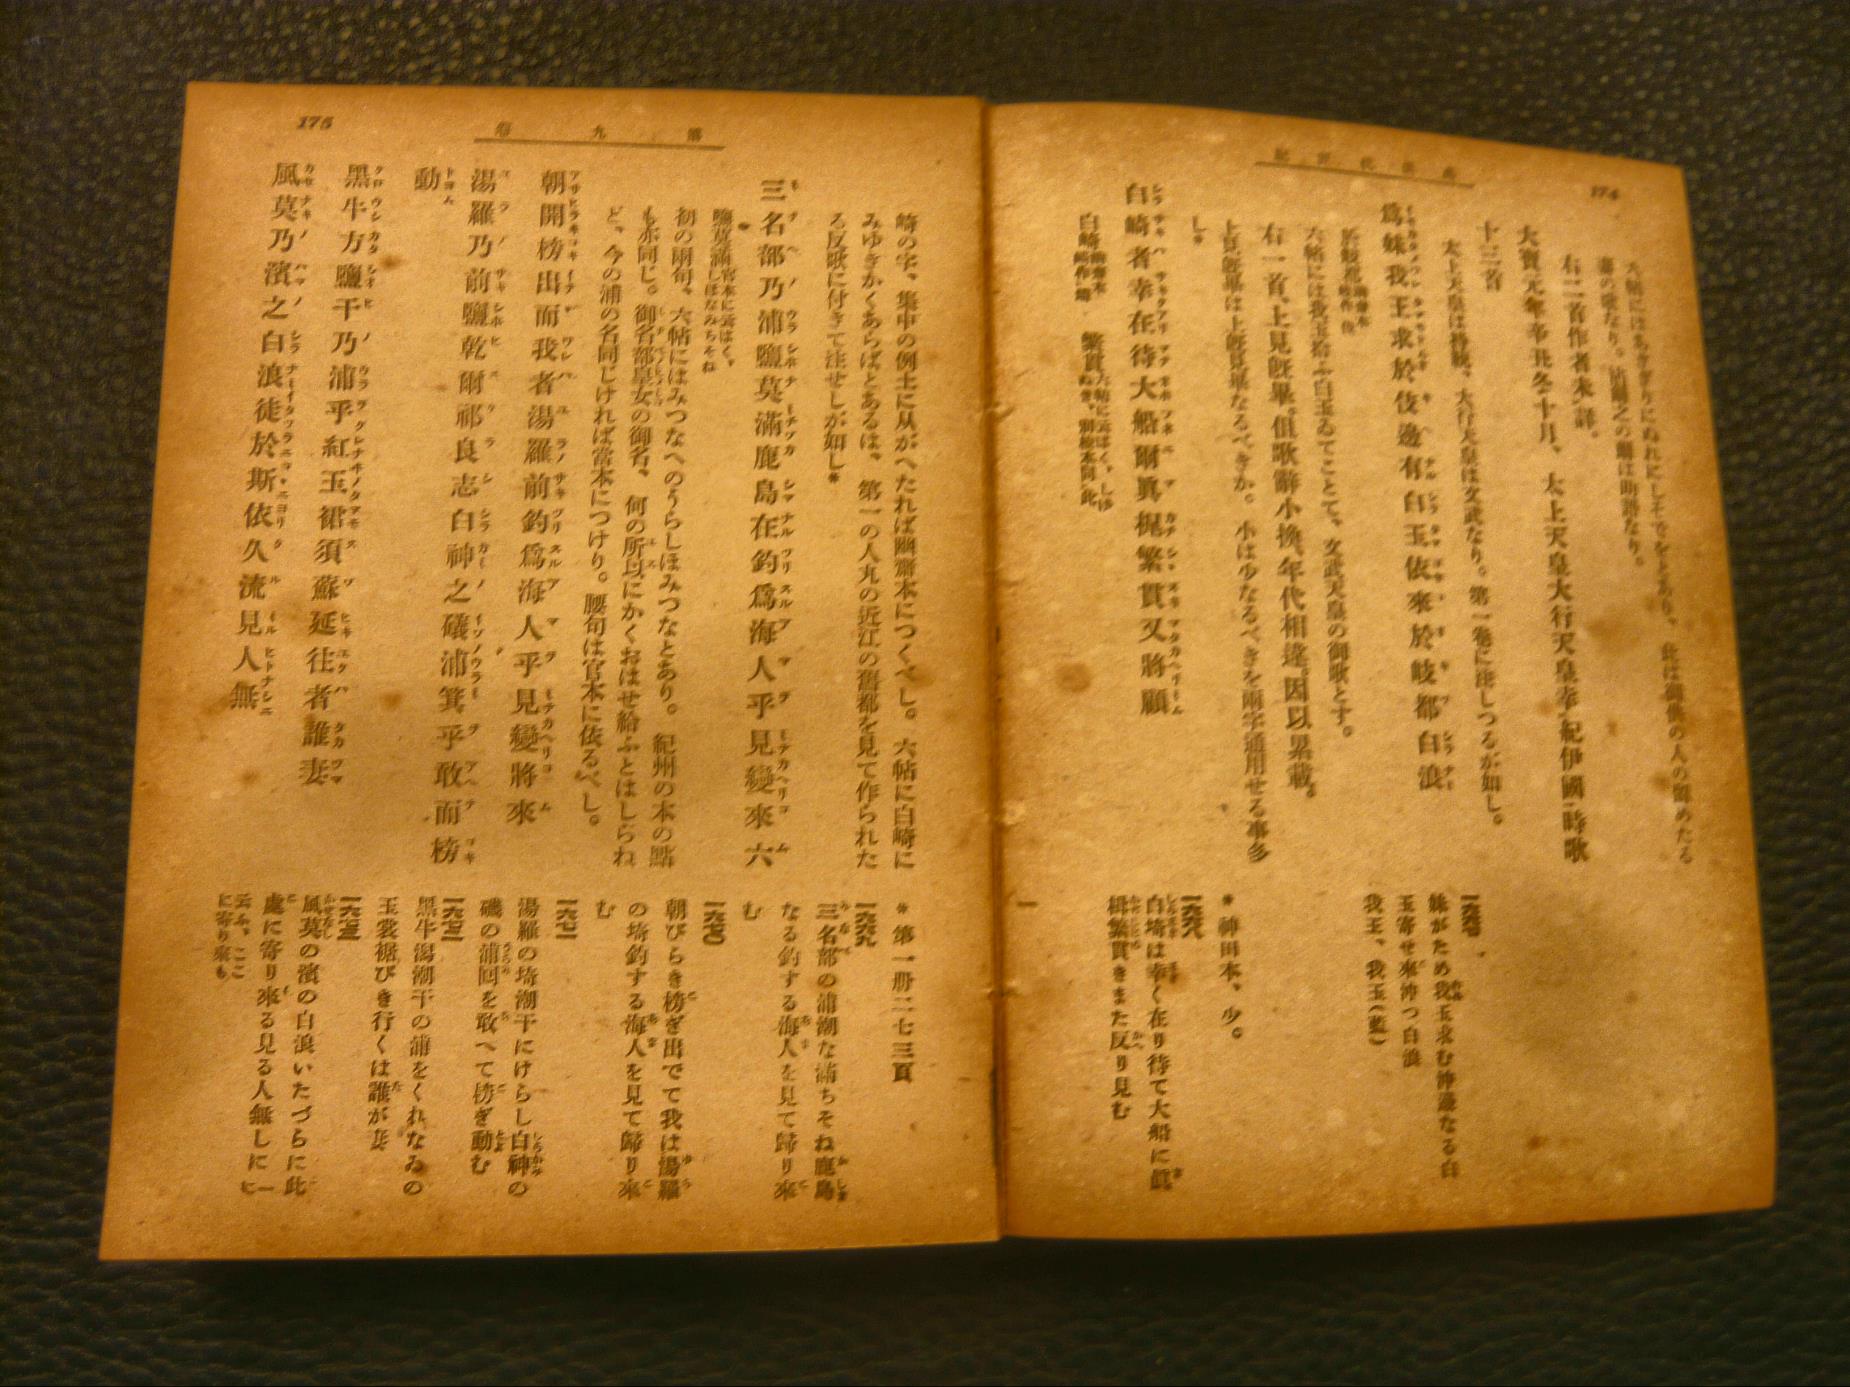 174
六帖にはあさぎりにぬれにしそでをとあり。此は御供の人の留めたる
妻の歌なり。
右二首作者未詳。
大寶元年辛丑冬十月、太上天皇大行天皇幸紀伊國時歌
十三首
太上天皇は持統、大行天皇は文武なり。第一卷に注しつるが如し。
爲妹我玉求於伎邊有白玉依來於岐都白浪
六帖には我玉拾ふ白玉ゐてことて、文武天皇の御歌とす。
右一首、上見既畢。但歌辭小換、年代相違。因以累載。
上見既畢は上既見畢なるべきか。小は少なるべきを兩字通用せる事多
し*
白崎者幸在待大船爾眞梶繁貫又將顧
白崎
繁貫
一六六七
妹がため我玉求む沖邊なる白
玉寄せ來沖つ白浪
我玉、我玉(藍)
*神田本、少。
一六六八
白埼は幸く在り待て大船に眞
楫繁貫きまた反り見む
第九卷
175
崎の字、集中の例土に从がへたれば幽齋本につくべし。六帖に白崎に
みゆきかくあらばとあるは、第一の人丸の近江の舊都を見て作られた
る反歌に付きて注せしが如し*
三名部乃浦鹽莫滿鹿島在釣爲海人乎見變來六
鹽莫滿官本に云はく、しほなみちそね
初の兩句、六帖にはみつなへのうらしほみつなとあり。紀州の本の點
も亦同じ。御名部皇女の御名、何の所以にかくおはせ給ふとはしらね
ど、今の浦の名同じければ當本につけり。腰句は官本に依るべし。
朝開榜出而我者湯羅前釣爲海人乎見變將來
湯羅乃前鹽乾爾祁良志白神之礒浦箕乎敢而榜
動
黑牛方鹽干乃浦乎紅玉裙須蘇延往者誰妻
風莫乃濱之白浪徒於斯依久流見人無
*第一册二七三頁
一六六九
三名部の浦潮な滿ちそね鹿島
なる釣する海人を見て歸り來
む
一六七〇
朝びらき榜ぎ出でて我は湯羅
の埼釣する海人を見て歸り來
む
一六七一
湯羅の埼潮干にけらし白神の
磯の浦回を敢へて榜ぎ動む
一六七二
黑牛潟潮干の浦をくれなゐの
玉裳裾びき行くは誰が妻
一六七三
風莫の濱の白浪いたづらに此
處に寄り來る見る人無しに 一に
云ふ、ここ
に寄り來も